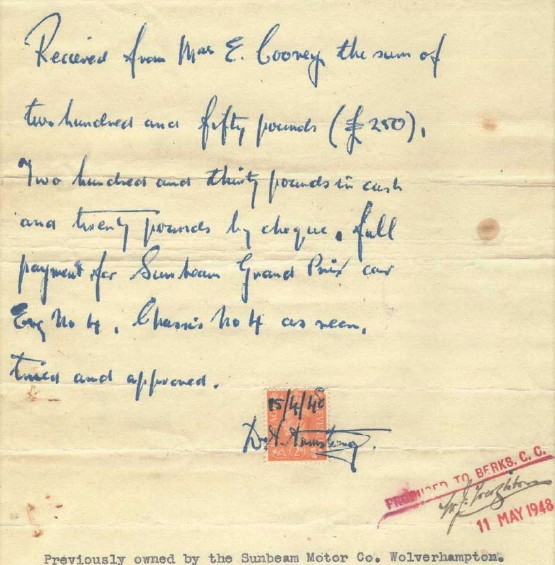 Recieved from Mrs E. Cooney the sum of
two hundred and fifty pounds (£250).
Two hundred and thirty pounds in cash
and twenty pounds by cheque, full
payment for Sunbeam Grand Prix car
Eng No 4. Chassis No 4 as seen,
tried and approved.
15/4/48
Armstrong
PRODUCED TO BERKS. C. C.
11 MAY 1948
Previously owned by the Sunbeam Motor Co. Wolverhampton.